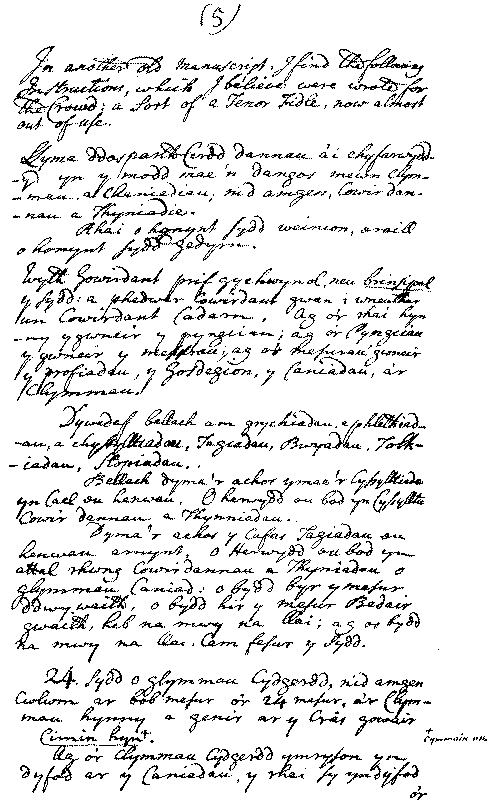 (5)
In another old manuscript, I find the following
Instructions, which I believe were wrote for
the Crowd; a Sort of a Tenor Fidle, now almost
out of use.
Llyma ddosparth Cerdd dannau a'i chyfarwydd-
-yd yn y modd mae'n dangos mewn Clym-
-mau, a Chaniadau, nid amgen, Cowirdan-
-nau a Thyniadie.
Rhai o honynt sydd weinion, araill
o honynt sydd gedyrn.
Wyth Gowirdant prif gychwynol, neu brinsipal
y sydd: a phedwar Cowirdant gwan i wneuthur
un Cowirdant Cadarn. Ag o'r rhai hyn-
-ny y gwneir y pynciau; ag o'r Pyngciau
y gwneir y mesurau; ag o'r mesurau gwneir
y profiadau, y Gosdegion, y Caniadau, a'r
Clymmau.
Dywedaf bellach am grychiadau, a phlethiad-
-au, a chysylltiadau, Tagiadau, Bwriadau, Tolk-
-iadau, Stopiadau.
Bellach dyma'r achos y mae'r Cysylltiada
yn Cael eu henwau. O herwydd eu bod yn Cysylltu
Cowir dannau, a Thynniadau.
Dyma'r achos y Cafas Tagiadau eu
henwau arnynt, o Herwydd eu bod yn
attal rhwng Cowirdannau a Thyniadau o
glymmau Caniad: o bydd byr y mesur
ddwy waith, o bydd hir y mesur Bedair
gwaith, heb na mwy na llai; ag os bydd
na mwy na llai. Cam fesur y sydd.
24. Sydd o glymmau Cydgerdd, nid amgen
Cwlwm ar bob mesur o'r 24 mesur, a'r Clym-
mau hynny a genir ar y Crâs gowair
Cimin hynt.
Ag o'r Clymmau Cydgerdd ymryson yn
dyfod ar y Caniadau, y rhai sy yn dyfod
o'r